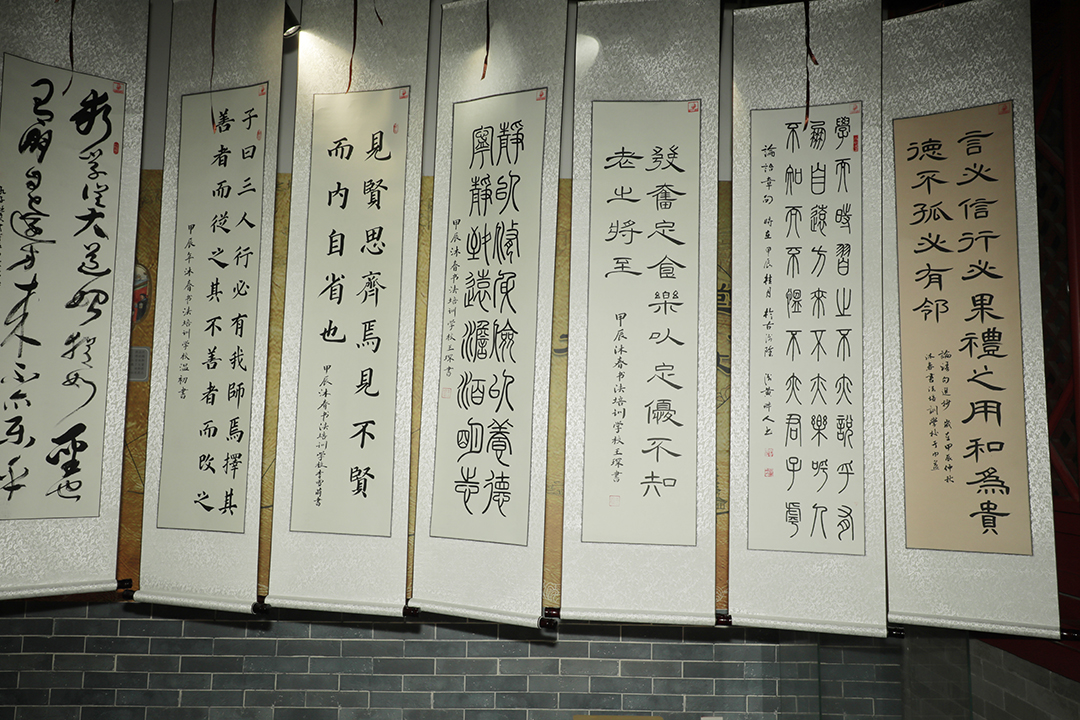 言必信行必果禮之用和爲貴
德不孤必有邻
論語句選抄 歲在甲辰仲秋
沐春書法培訓學校
學而時習之不亦說乎有
朋自遠方來不亦樂乎人
不知而不愠不亦君子乎
論語章句 時在甲辰桂月 於古涪陵
發奮忘食樂以忘優不知
老之將至
甲辰沐春书法培训学校王琛書
靜以修身儉以養德
寧靜致遠澹泊明志
甲辰沐春书法培训学校王琛書
見賢思齊焉見不賢
而内自省也
甲辰沐春书法培训学校李
子曰三人行必有我師焉擇其
善者而從之其不善者而改之
甲辰年沐春书法培训学校温初書
大道
有朋自遠方来不亦乐乎